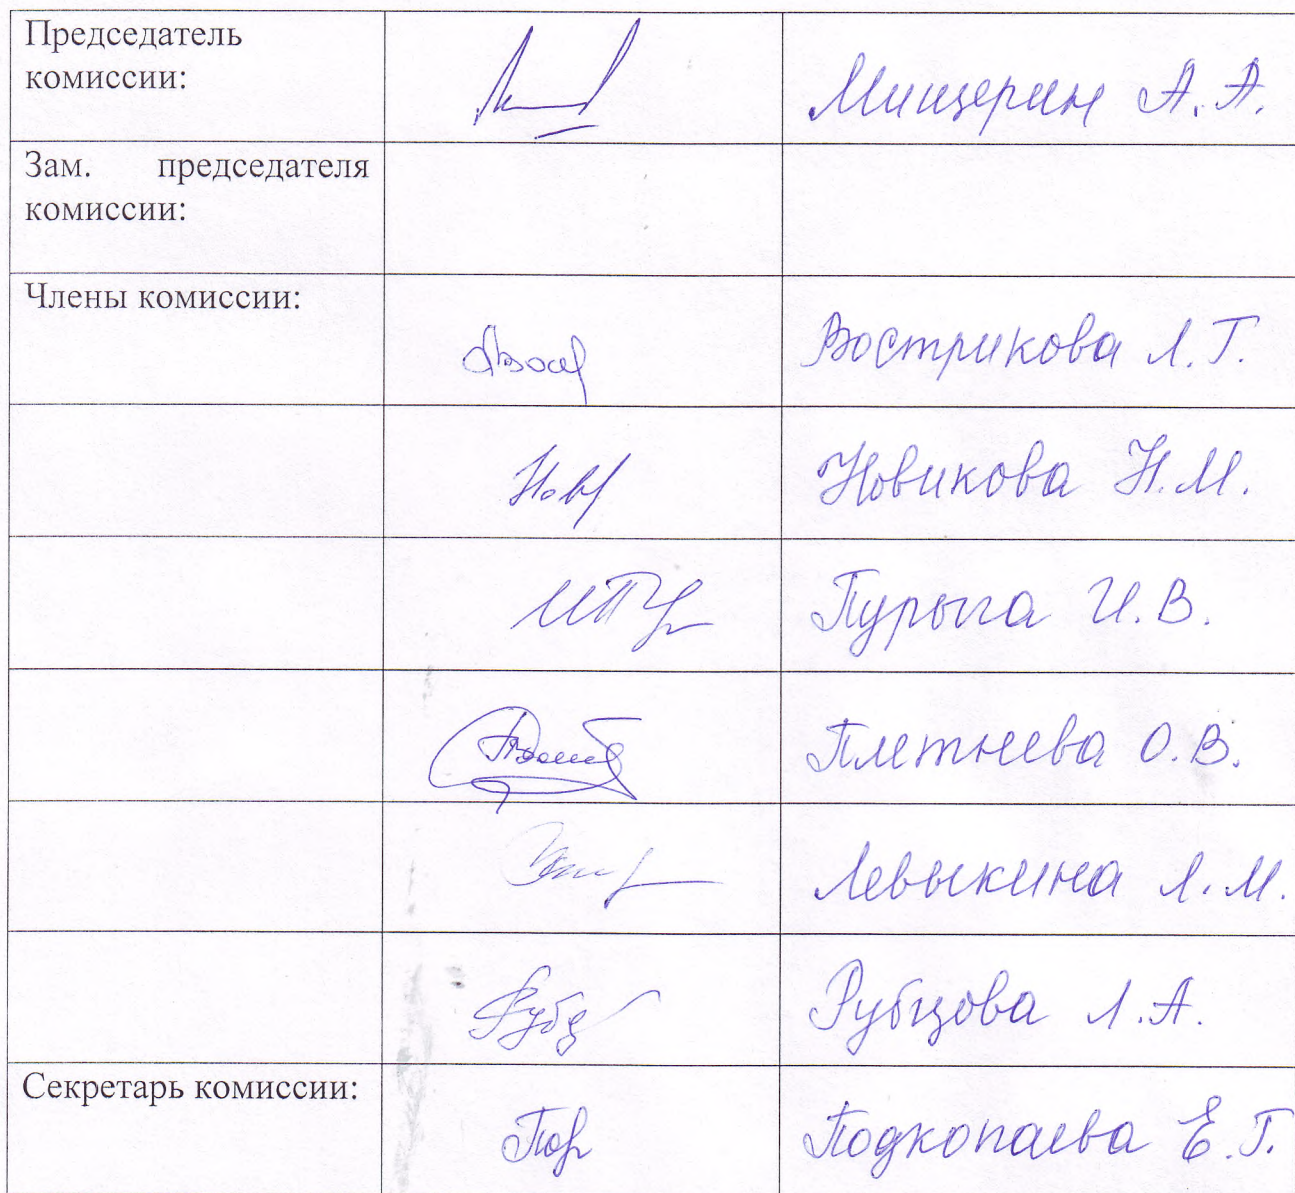 Председатель
комиссии:
Мищерин А. А.
Зам. председателя
комиссии:
Члены комиссии:
Вострикова Л. Г.
Новикова Н. М.
Пурыга И. В.
Плетнева О. В.
Левыкина Л. М.
Рубцова Л. А.
Секретарь комиссии:
Подкопаева Е. Г.